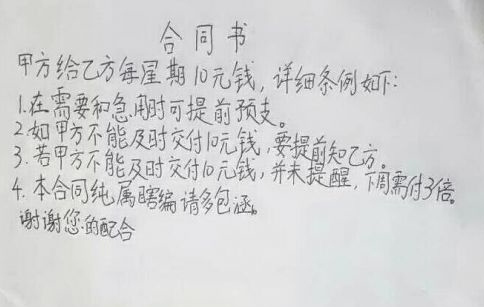 合同书
甲方给乙方每星期10元钱，详细条例如下：
1.在需要和急用时可提前预支。
2.如甲方不能及时交付10元钱，要提前知乙方。
3.若甲方不能及时交付10元钱，并未提醒，下周需付3倍。
4.本合同纯属瞎编请多包涵。
谢谢您的配合